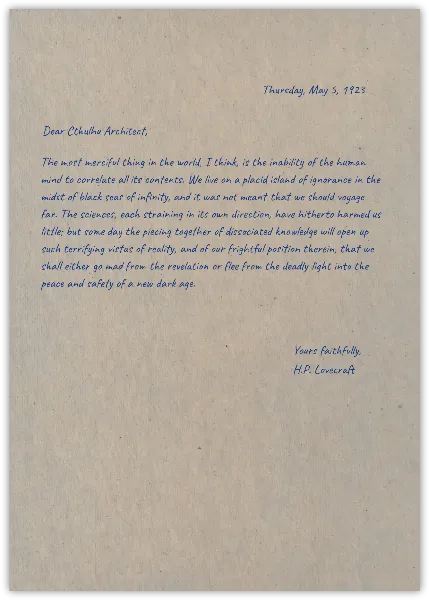 Thursday, May 5, 1923
Dear Cthulhu Architect,
The most merciful thing in the world, I think, is the inability of the human
mind to correlate all its contents. We live on a placid island of ignorance in the
midst of black seas of infinity, and it was not meant that we should voyage
far. The sciences, each straining in its own direction, have hitherto harmed us
little; but some day the piecing together of dissociated knowledge will open up
such terrifying vistas of reality, and of our frightful position therein, that we
shall either go mad from the revelation or flee from the deadly light into the
peace and safety of a new dark age.
Yours faithfully,
H.P. Lovecraft